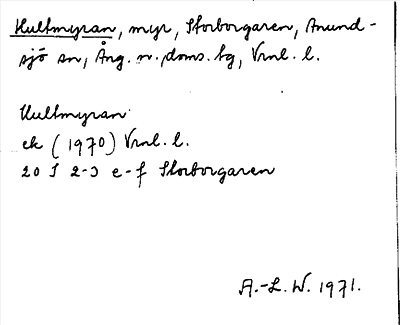 Hultmyran, myr, Storborgaren, Anund-
sjö sn, Ång. n. doms. bg, Vrnl. l.
Hultmyran
ek (1970) Vrnl. l.
20 I 2-3 e-f Storborgaren
A.-L. W. 1971.